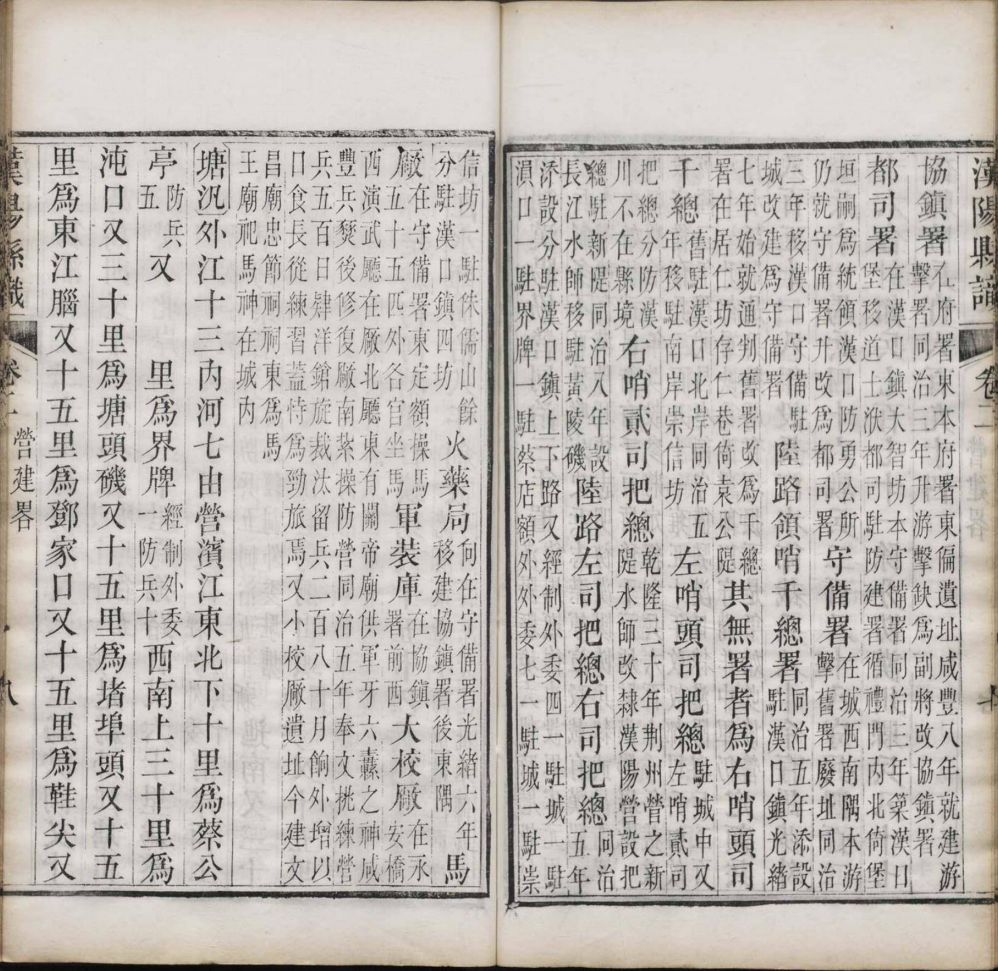 漢陽縣識 卷二
協鎮署在府署東本府署東偏遺址咸豐八年就建游擊署同治三年升游擊缺為副將改協鎮署
都司署在漢口鎮大智坊本守備署同治三年築漢口堡移道士洑都司駐防建署循禮門內北倚堡
垣嗣為統領漢口防勇公所仍就守備署升改為都司署守備署在城西南隅本游擊舊署廢址同治
三年移漢口守備駐城改建為守備署陸路領哨千總署同治五年添設駐漢口鎮光緒
七年始就通判舊署改為千總署在居仁坊存仁巷倚袁公隄其無署者為右哨頭司
千總舊駐漢口北岸同治五年移駐南岸崇信坊左哨頭司把總駐城中又左哨貳司
把總分防漢川不在縣境右哨貳司把總乾隆三十年荆州營之新隄水師改隸漢陽營設把
總駐新隄同治八年設長江水師移駐黃陵磯陸路左司把總右司把總同治五年
添設分駐漢口鎮上下路又經制外委四一駐城一駐溳口一駐界牌一駐蔡店額外外委七一駐城一駐崇
信坊一駐侏儒山餘分駐漢口鎮四坊火藥局向在守備署光緒六年移建協鎮署後東隅馬
廠在守備署東定額操馬五十五匹外各官坐馬軍裝庫在協鎮署前西大校厰在永安橋
西演武廳在厰北廳東有關帝廟供軍牙六纛之神咸豐兵燹後修復厰南紮操防營同治五年奉文挑練營
兵五百日肄洋鎗旋裁汰留兵二百八十月餉外增以口食長從練習蓋恃為勁旅焉又小校厰遺址今建文
昌廟忠節祠祠東為馬王廟祀馬神在城內
塘汛外江十三內河七由營濱江東北下十里為蔡公
亭防兵五又 里為界牌經制外委一防兵十西南上三十里為
沌口又三十里為塘頭磯又十五里為堵埠頭又十五
里為東江腦又十五里為鄧家口又十五里為鞋尖又
漢陽縣識 卷二 營建畧 八